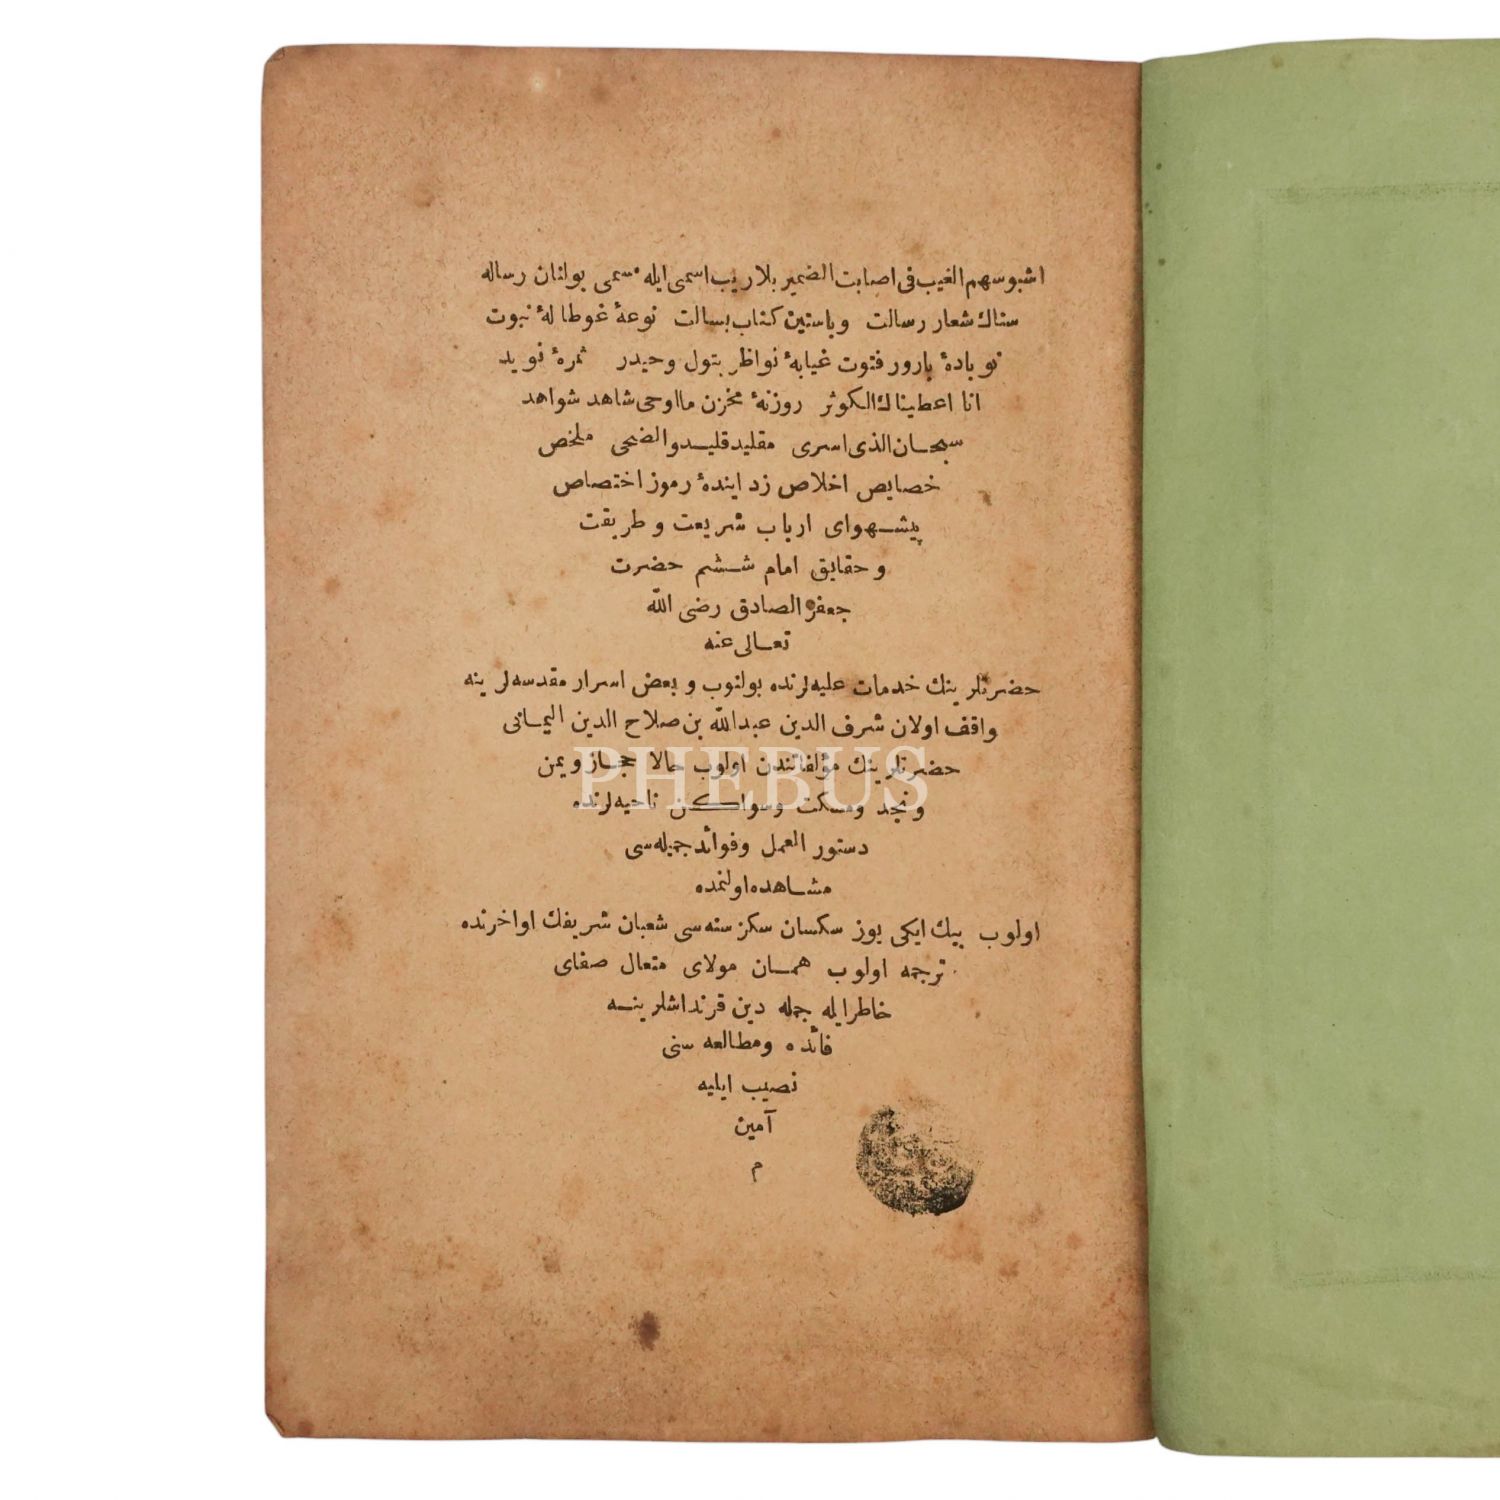 اشبو سهم الغيب فى اصابت الضمير بلاريب اسمى ايله مسمى بولنان رساله
سناك شعار رسالت وباستين كتاب بسالت نوعهٔ غوطا لهٔ نبوت
نوبادهٔ بارور فتوت غيابهٔ نواظر بتول وحيدر ثمرهٔ نويد
انا اعطيناك الكوثر روزنهٔ مخزن مااوحى شاهد شواهد
سبحان الذى اسرى مقليد قليد والضحى ملخص
خصايص اخلاص زدايندهٔ رموز اختصاص
پيشهواى ارباب شريعت وطريقت
وحقايق امام ششم حضرت
جعفر الصادق رضى الله
تعالى عنه
حضرتلرينك خدمات عليه لرنده بولنوب وبعض اسرار مقدسه لرينه
واقف اولان شرف الدين عبدالله بن صلاح الدين اليمانى
حضرتلرينك مؤلفاتندن اولوب حالا حجاز ويمن
ونجد ومسكت وسواكن ناحيه لرنده
دستور العمل وفوائد جميله سى
مشاهده اولنمده
اولوب بيك ايكى يوز سكسان سكز سنه سى شعبان شريفك اواخرنده
ترجمه اولوب همان مولاى متعال صفاى
خاطر ايله جمله دين قرنداشلرينه
فائده ومطالعه سنى
نصيب ايليه
آمين
م
PHEBUS